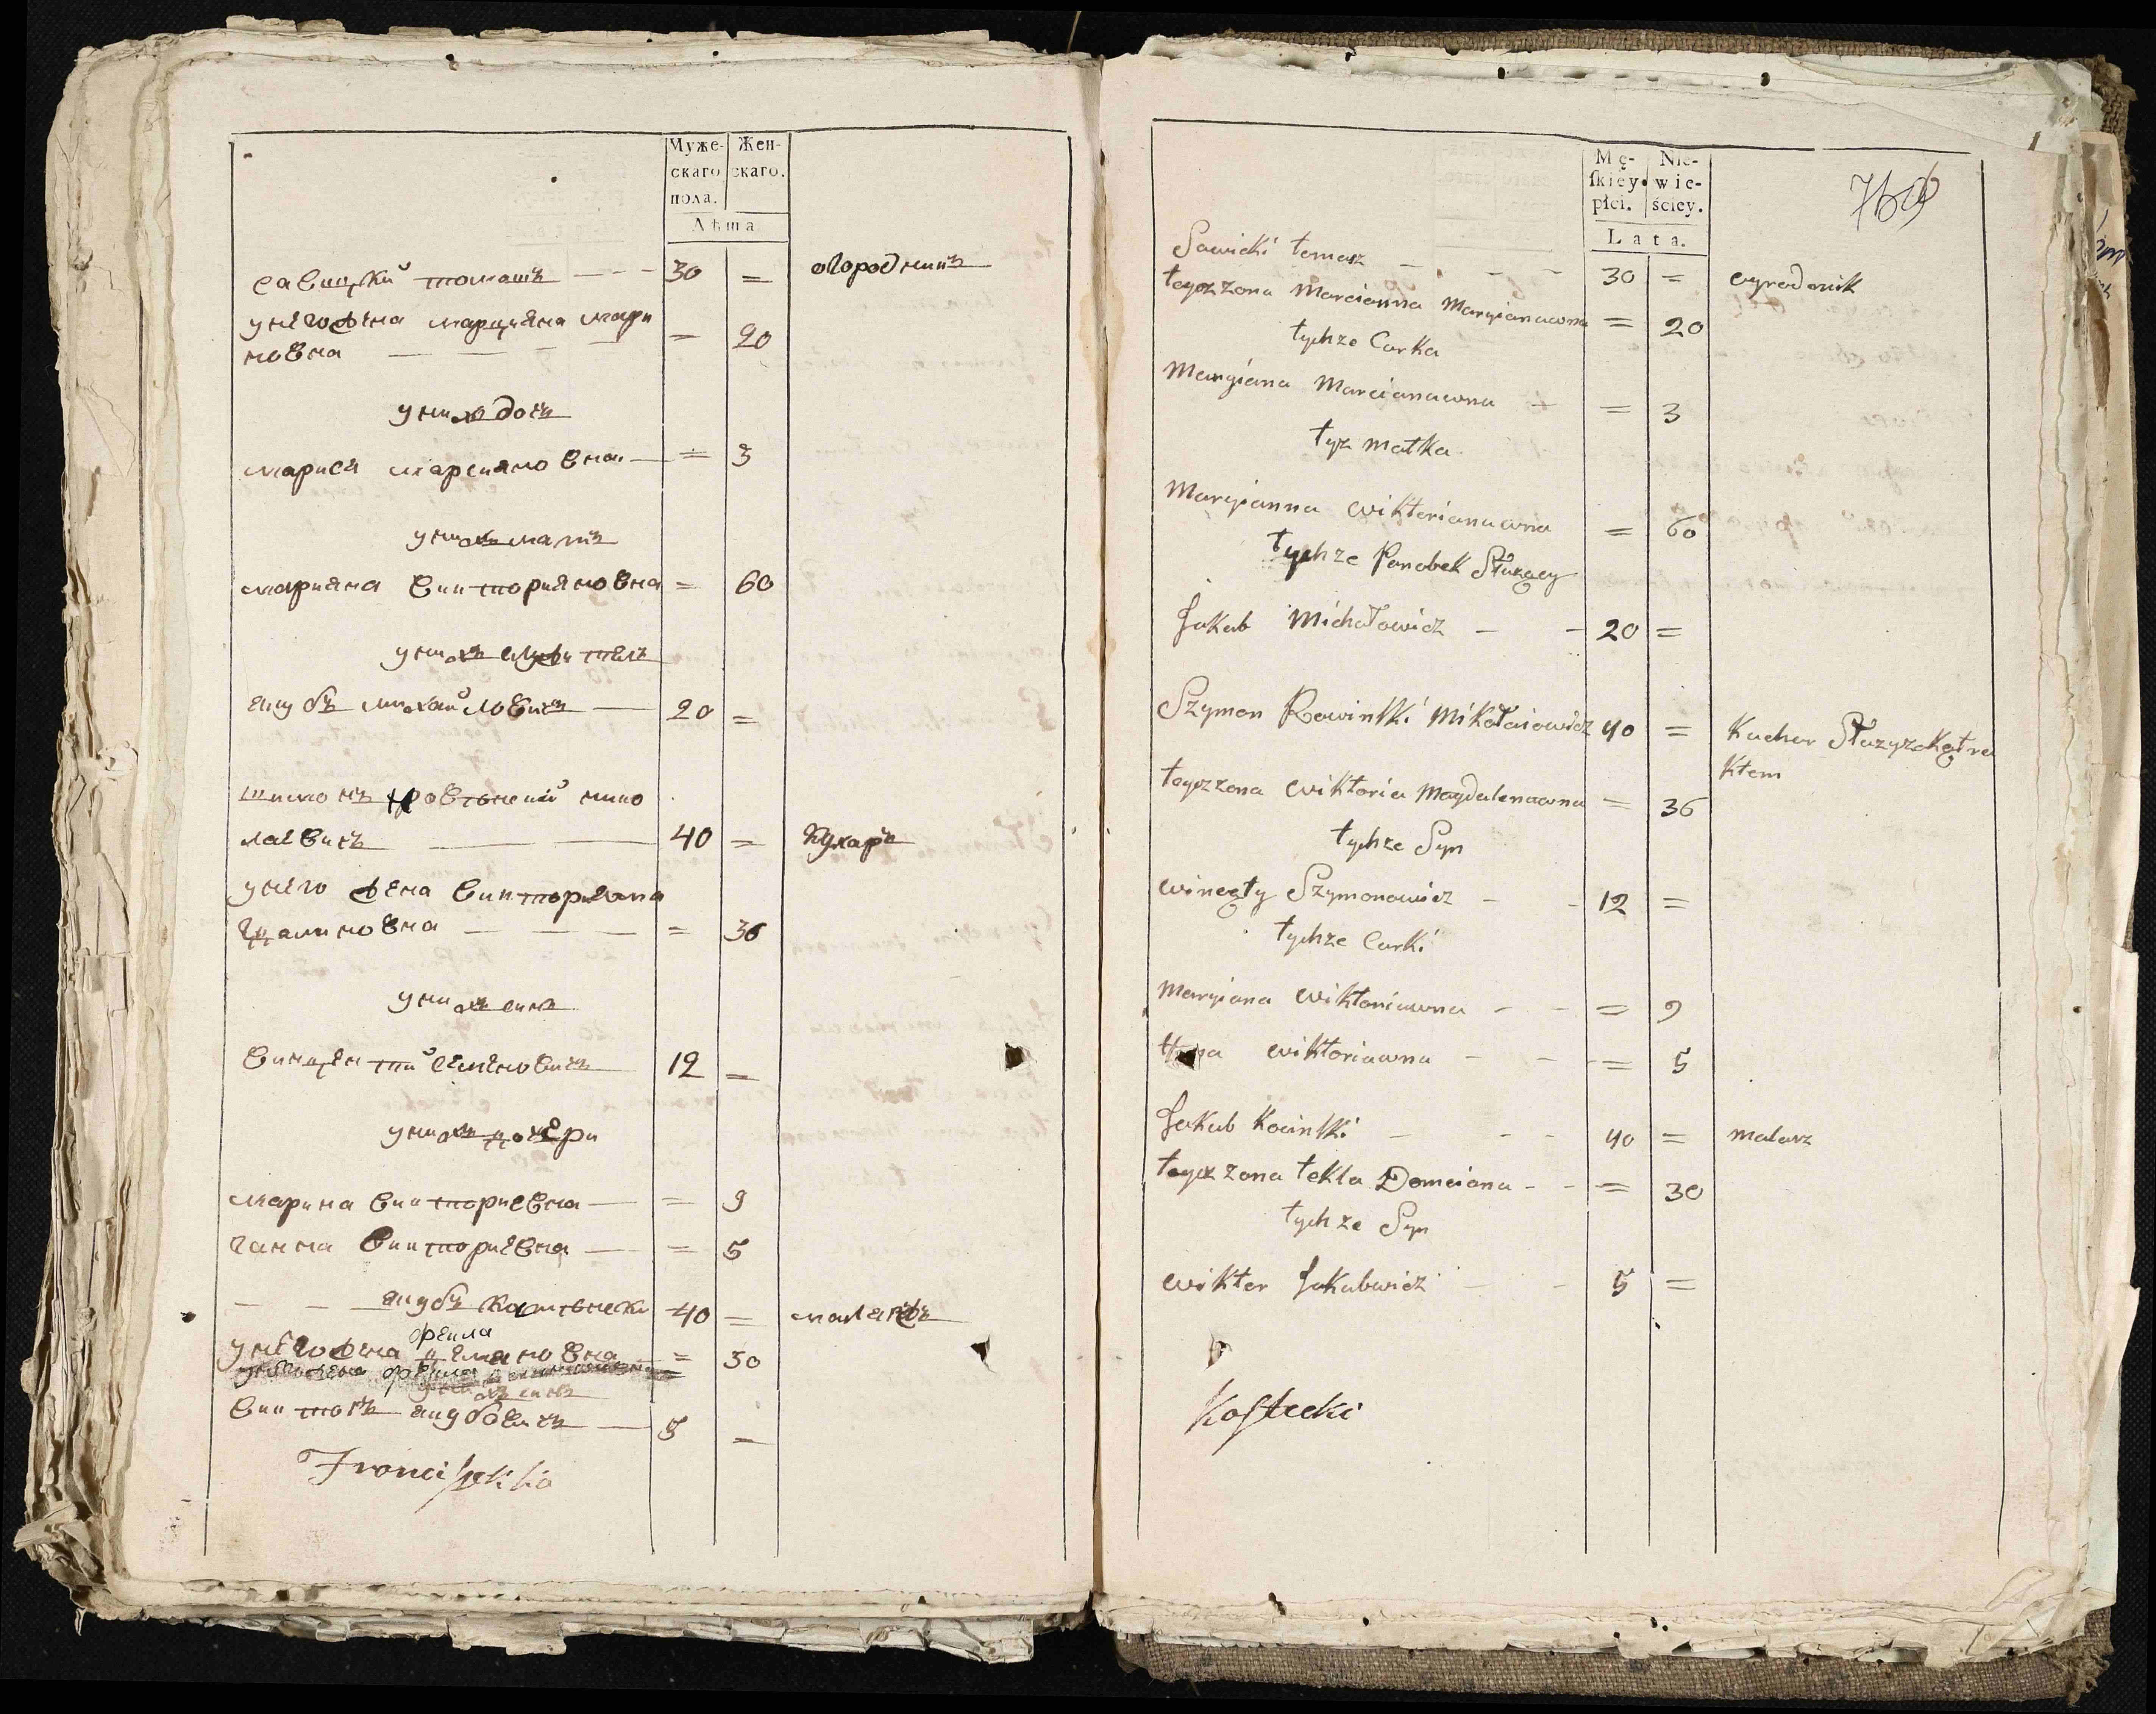 Муже-
скаго
пола.
Жен-
скаго.
Лѣта
савицкий томашъ — — — 30 = огородникъ
унего жена марцияна мари
новна — — — = 20
уних дочъ
марися марсияновна — = 3
унихъ матъ
марияна викторияновна = 60
унихъ служителъ
якубъ михайловичъ — 20 =
шимонъ ровинский нико
лаевичъ — — 40 = кухаръ
унего жена виктория
новна — — — = 36
унихъ синъ
винцентий семеновичъ 12 =
унихъ дочери
марина викториевна — = 9
ганна викториевна — = 5
— — якубъ 40 = маляръ
текла
унего жена новна = 30
синъ
викторъ якубовичъ — 5 =
Franciszek
769
Mę-
ſkiéy
płci.
Nie-
wie-
ściey.
Lata.
Sawicki tomasz — — — 30 = ogrodnik
tegoz zona Marcianna Maryianawna = 20
tychze Curka
Maryiana Marcianawna — = 3
tyz matka
Maryianna wiktorianawna = 60
tychze Parobek Służący
Jakub Michałowicz — — 20 =
Szymon Rowinſki Mikołaiowicz 40 = Kuchar
ktem
tegoz zona wiktoria Magdalenawna = 36
tychze Syn
wincęty Szymonowicz — — 12 =
tychze Curki
Maryiana wiktoriawna — — = 9
wiktoriawna — — = 5
Jakub Kocinſki — — — 40 = malarz
tegoz zona tekla Domciana — — = 30
tychze Syn
wikter Jakubwicz — — 5 =
Koſtecki